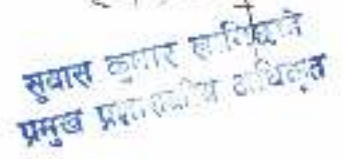 सुवास कुमार
प्रमुख प्रशासकीय अधिकृत